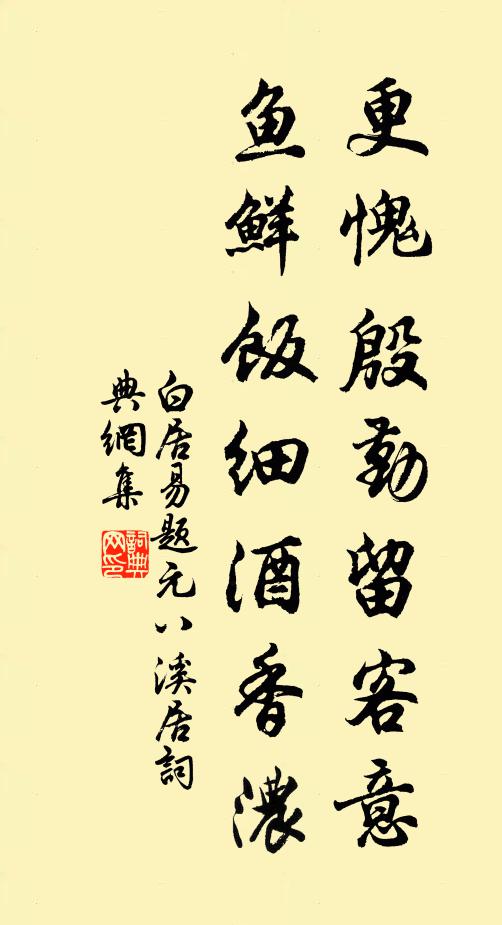 更愧殷勤留客意
鱼鮮飯细酒香濃
白居易题元八溪居詞
典網集
詞典
网印